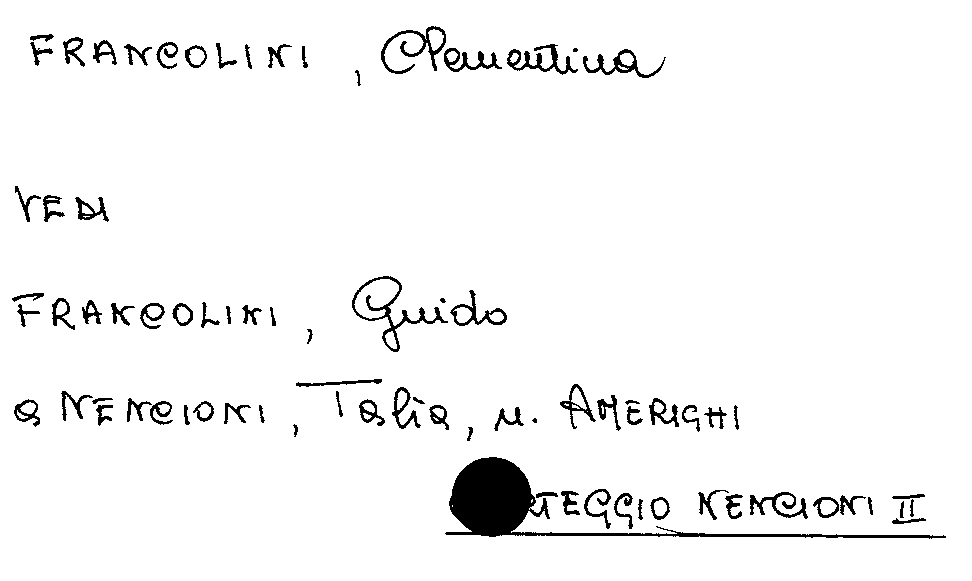 FRANCOLINI, Clementina
VEDI
FRANCOLINI, Guido
a NENCIONI, Talia, n. AMERIGHI
NENCIONI II